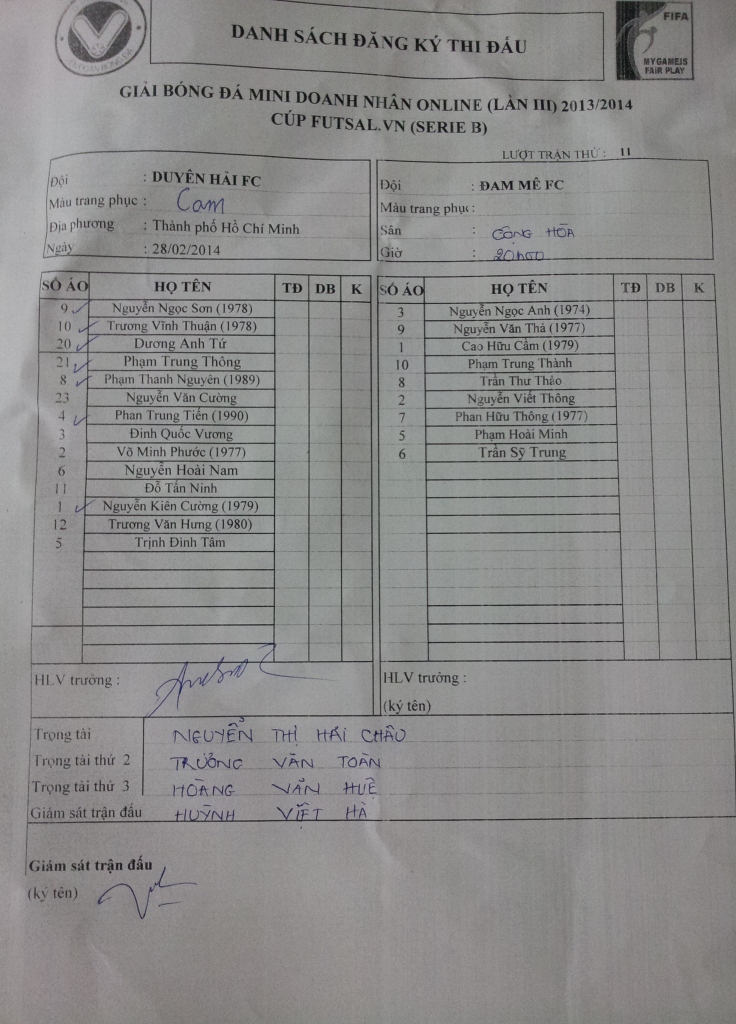 DANH SÁCH ĐĂNG KÝ THI ĐẤU
FIFA
MY GAME IS
FAIR PLAY
GIẢI BÓNG ĐÁ MINI DOANH NHÂN ONLINE (LẦN III) 2013/2014
CÚP FUTSAL.VN (SERIE B)
LƯỢT TRẬN THỨ : 11
Đội : DUYÊN HẢI FC
Màu trang phục : Cam
Địa phương : Thành phố Hồ Chí Minh
Ngày : 28/02/2014
Đội : ĐAM MÊ FC
Màu trang phục :
Sân : CỘNG HÒA
Giờ : 20h00
SỐ ÁO HỌ TÊN TĐ DB K
9 Nguyễn Ngọc Sơn (1978)
10 Trương Vĩnh Thuận (1978)
20 Dương Anh Tứ
21 Phạm Trung Thông
8 Phạm Thanh Nguyên (1989)
23 Nguyễn Văn Cường
4 Phan Trung Tiến (1990)
3 Đinh Quốc Vương
2 Võ Minh Phước (1977)
6 Nguyễn Hoài Nam
11 Đỗ Tấn Ninh
1 Nguyễn Kiên Cường (1979)
12 Trương Văn Hưng (1980)
5 Trịnh Đình Tâm
SỐ ÁO HỌ TÊN TĐ DB K
3 Nguyễn Ngọc Anh (1974)
9 Nguyễn Văn Thả (1977)
1 Cao Hữu Cầm (1979)
10 Phạm Trung Thành
8 Trần Thư Thảo
2 Nguyễn Viết Thông
7 Phan Hữu Thông (1977)
5 Phạm Hoài Minh
6 Trần Sỹ Trung
HLV trưởng :
HLV trưởng :
(ký tên)
Trọng tài NGUYỄN THỊ HẢI CHÂU
Trọng tài thứ 2 TRƯƠNG VĂN TOÀN
Trọng tài thứ 3 HOÀNG VĂN HUỆ
Giám sát trận đấu HUỲNH VIẾT HÀ
Giám sát trận đấu
(ký tên)